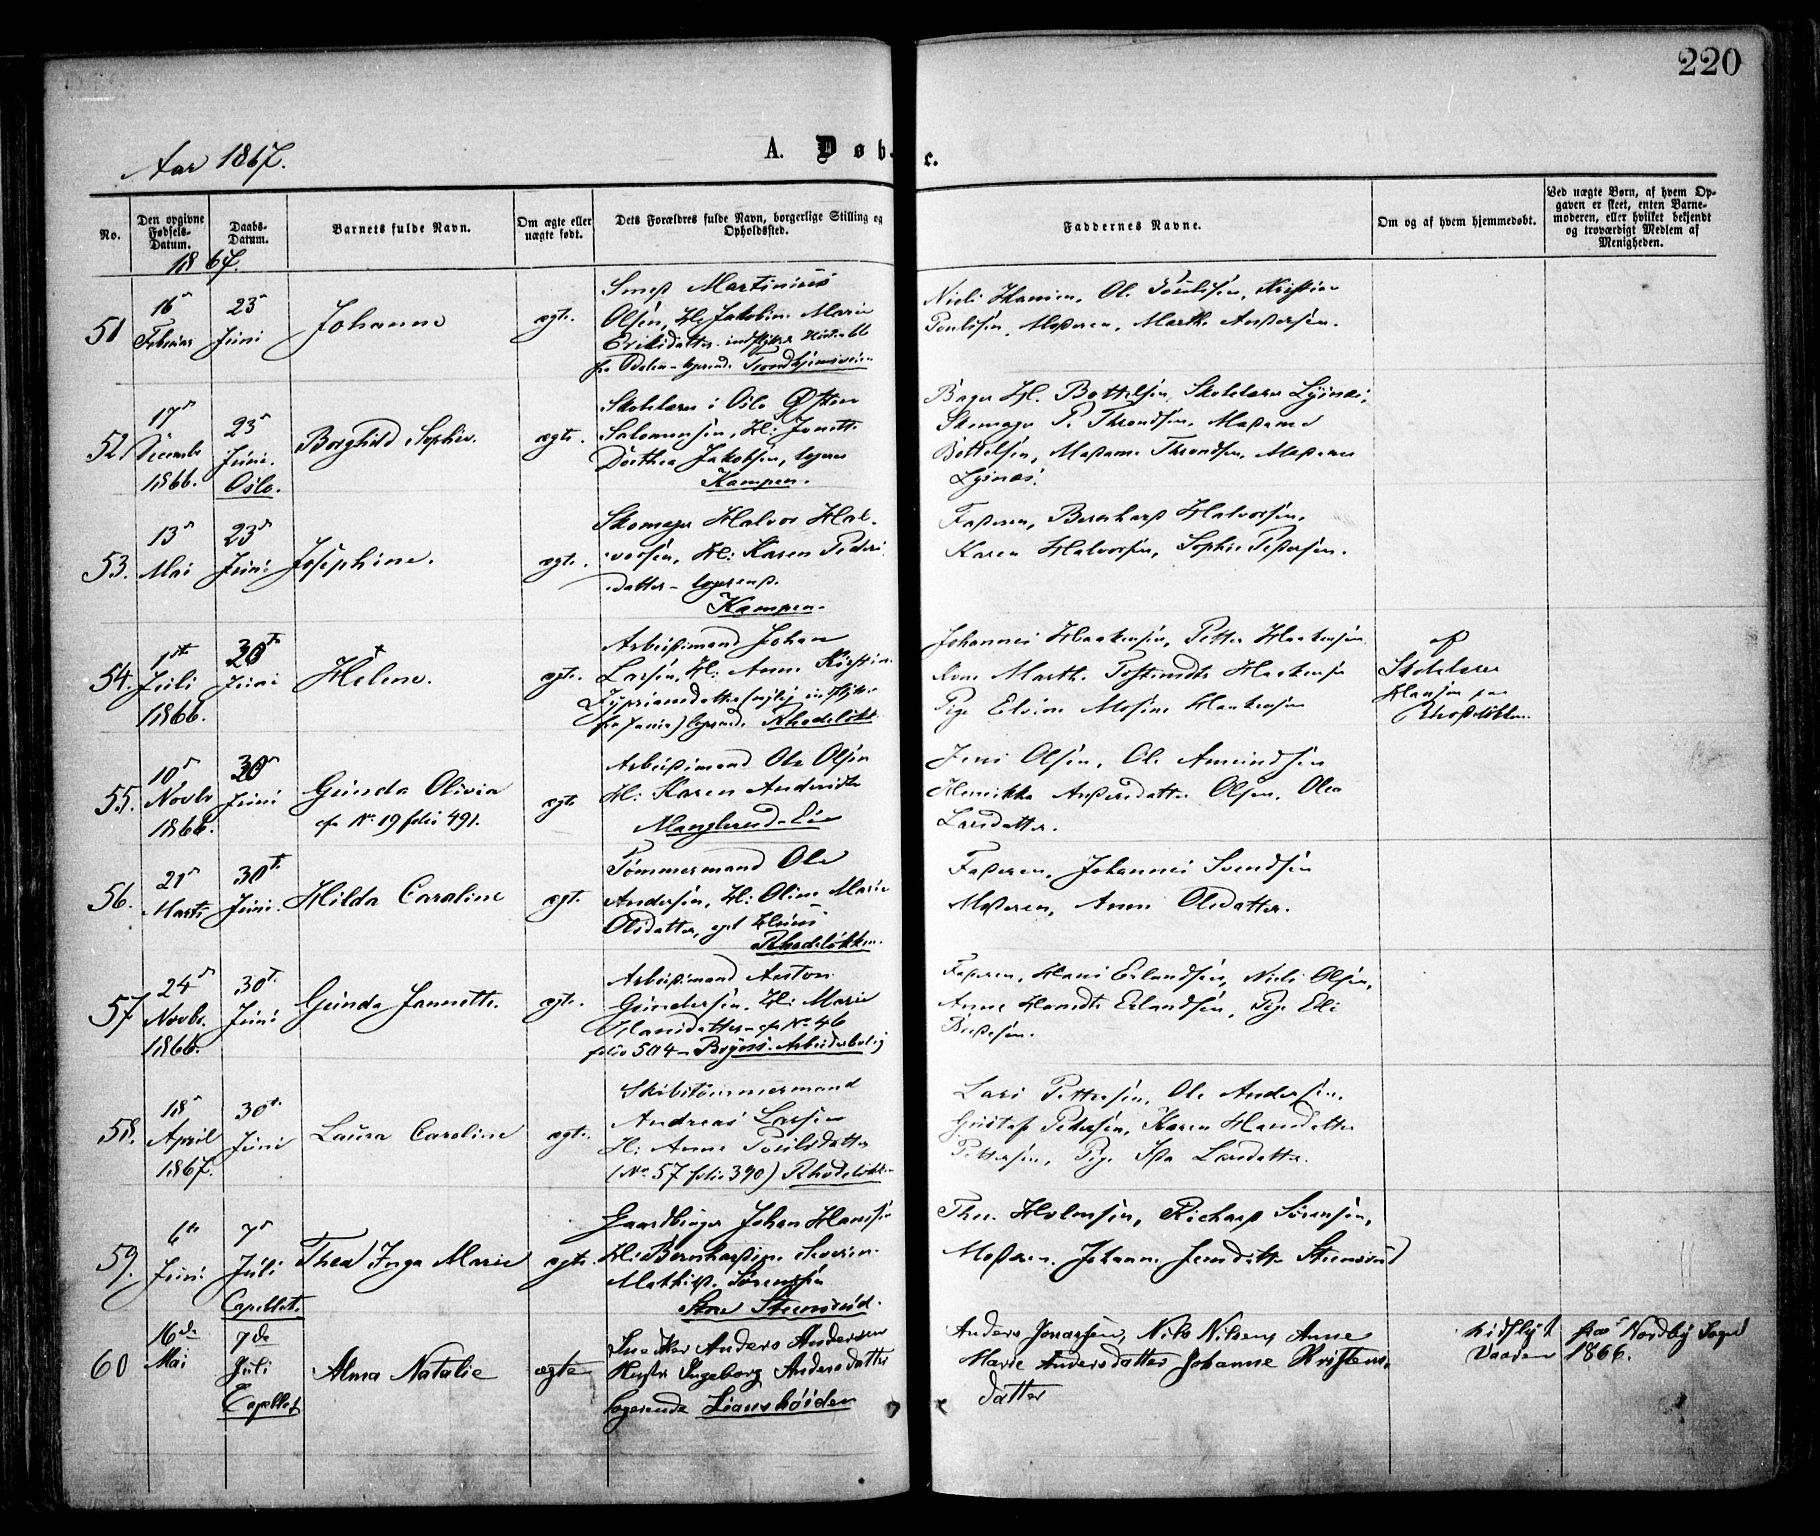 220
Aar 1867.
A. Døbte.
No.
Den opgivne Fødsels-Datum.
Daabs-Datum.
Barnets fulde Navn.
Om ægte eller uægte født.
Dets Forældres fulde Navn, borgerlige Stilling og Opholdssted.
Faddernes Navne.
Om og af hvem hjemmedøbt.
Ved uægte Børn, af hvem Opgaven er skeet, enten Barnemoderen, eller hvilket bekjendt og troværdigt Medlem af Menigheden.
1867.
51
16 Februar
23 Juni
Johanne
ægte.
Smed Martinius
Olsen, H: Jakobine Marie
Eriksdatter
logerende Trondhjemsveien
Niels Hansen, Ole Poulsen, Kristian
Poulsen, Moderen, Marthe Andersen.
52
17 Decembr 1866.
23 Juni. Oslo.
Borghild Sophie.
ægte.
Skolelærer i Oslo Østen
Salomonsen, H: Jonette
Dorthea Jakobsen, logere
Kampen.
Bager H. Bottelsen, Skolelærer Lysnæs,
Skomager P. Throndsen, Madame
Bottelsen, Madame Throndsen, Madame
Lysnæs.
53.
13 Mai
23 Juni
Josephine.
ægte.
Skomager Halvor Hal-
vorsen, H: Karen Peders
datter - logerend.
Kampen.
Faderen, Bernhard Halvorsen,
Karen Halvorsen, Sophie Pedersen.
54.
1ste Juli 1866.
30te Juni
Helene.
ægte.
Arbeidsmand Johan
Larsen, H: Anne Kirstine
logerende Rhodeløkk.
Johannes Haakensen, Petter Haakensen
Kone Marthe Haakensen
Pige Elvine Mosine Haakensen
af
Skolelærer
Hansen paa
Rhodeløkken.
55.
10 Novbr 1866.
30 Juni
Gunda Olivia
cfr No 19 folio 491.
ægte
Arbeidsmand Ole Olsen
H: Karen Andersdtr
Manglerud Eie
Jens Olsen, Ole Amundsen
Henrikke Andersdatter Olsen, Olea
Larsdatter.
56.
21 Marts
30te Juni.
Hilda Caroline
ægte.
Tømmermand Ole
Andersen, H: Oline Marie
Olsdatter, eget Huus
Rhodeløkken.
Faderen, Johannes Svendsen
Moderen, Anne Olsdatter.
57
24 Novbr. 1866.
30t. Juni
Gunda Jannette.
ægte.
Arbeidsmand Anton
Gundersen, H: Marie
Hansdatter - cfr No 46
folio 504 - Bergs Arbeiderbolig
Faderen, Hans Erlandsen, Niels Olsen,
Anne Hansdtr Erlandsen, Pige Eli
58.
18 April 1867.
30te Juni
Laura Caroline
ægte.
Skibstømmermand
Andreas Larsen
H: Anne Poulsdatter
(No 57 folio 390) Rhodeløkken
Lars Pettersen, Ole Andersen,
Gustaf Petersen, Karen Hansdatter
Pettersen, Pige Ida Larsdatter.
59.
6te Juni
7 Juli Capellet.
Thea Inga Marie
ægte.
Gaardbruger Johan Hansen
H: Bernhardine Severine
Mathilde Sørensen
Store Steensrud.
Thor Holmsen, Richard Sørensen,
Moderen, Johanne Jensdatter Steensrud
60
16de Mai
7de Juli Capellet
Alma Natalie
ægte
Snedker Anders Andersen
Hustr Ingeborg Andersdatter
logerende Lianshøiden
Anders Jonassen, Nils Nilsens, Anne
Marie Andersdatter Johanne Kristens-
datter
Indflyt fra Nordby Sogn
Vaaren 1866.